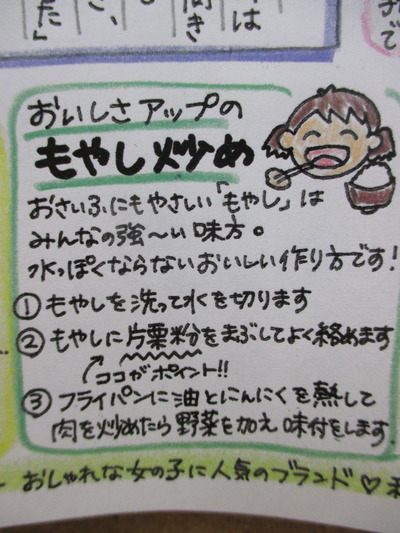 おいしさアップの
もやし炒め
おさいふにもやさしい「もやし」は
みんなの強〜い味方。
水っぽくならないおいしい作り方です!
①もやしを洗って水を切ります
②もやしに片栗粉をまぶしてよく絡めます
ココがポイント!!
③フライパンに油とにんにくを熱して
肉を炒めたら野菜を加え味付をします
おしゃれな女の子に人気のブランド♡